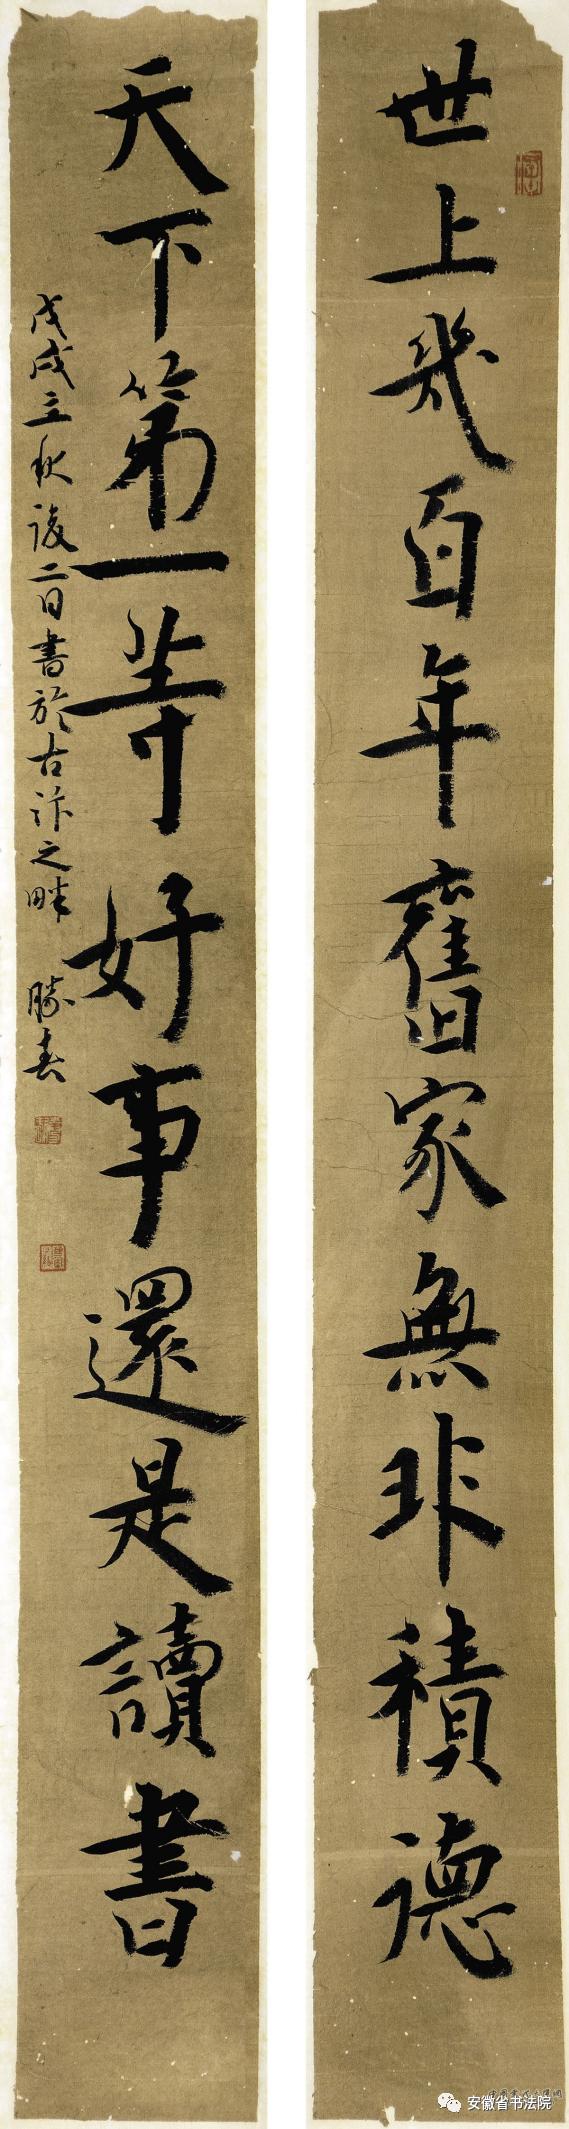 世上幾百年舊家無非積德
天下第一等好事還是讀書
戊戌立秋後二日書於古汴之畔 勝春
安徽省书法院